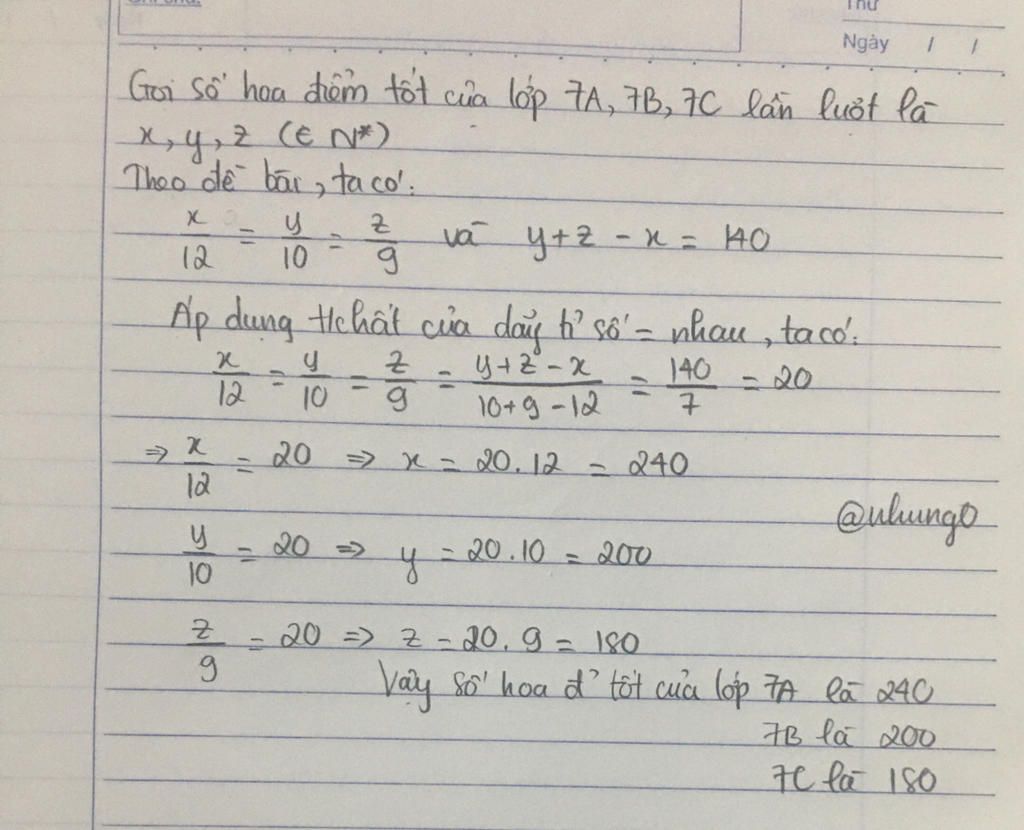 Thứ
Ngày / /
Gọi số hoa điểm tốt của lớp 7A, 7B, 7C lần lượt là
x, y, z (∈ N*)
Theo đề bài, ta có:
x/12 = y/10 = z/9 và y+z-x = 140
Áp dụng t/chất của dãy tỉ số = nhau, ta có:
x/12 = y/10 = z/9 = y+z-x/10+9-12 = 140/7 = 20
⇒ x/12 = 20 ⇒ x = 20.12 = 240
@nhung0
y/10 = 20 ⇒ y = 20.10 = 200
z/9 = 20 ⇒ z = 20.9 = 180
Vậy số hoa đ' tốt của lớp 7A là 240
7B là 200
7C là 180